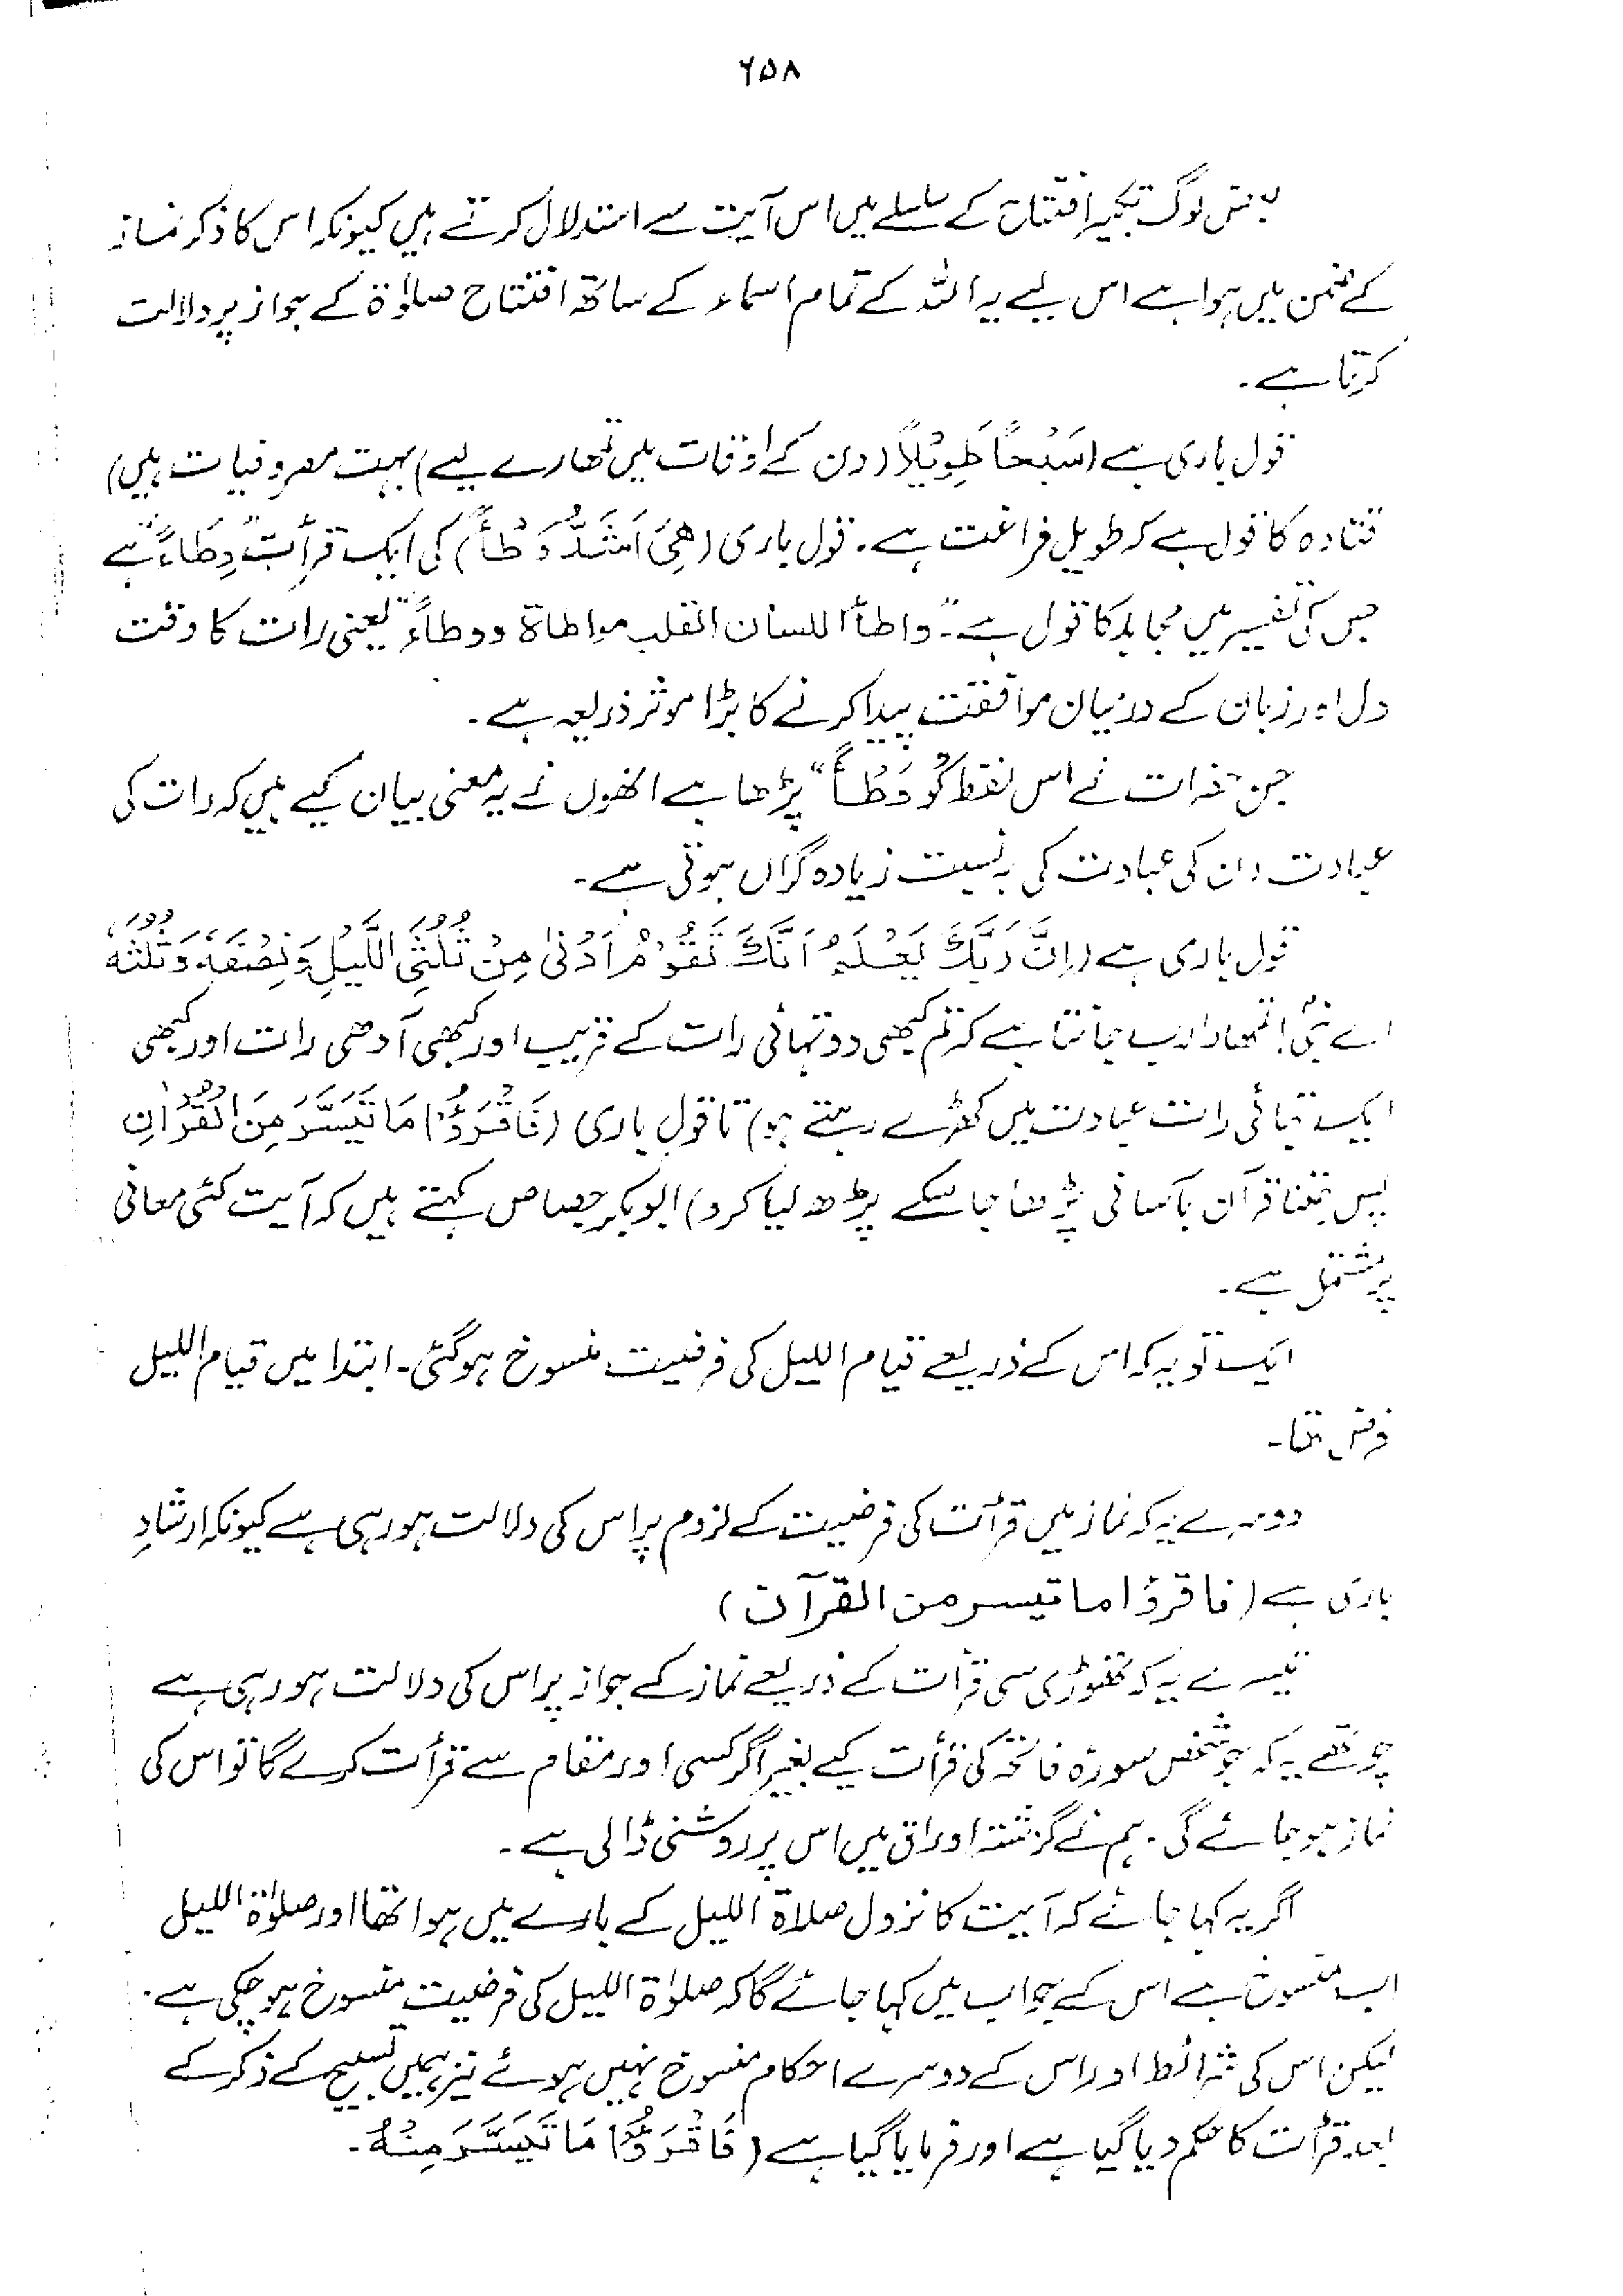 ۶۵۸
بعض لوگ تکبیر افتتاح کے سلسلے میں اس آیت سے استدلال کرتے ہیں کیونکہ اس کا ذکر نماز
کے ضمن میں ہوا ہے اس لیے یہ اللہ کے تمام اسماء کے ساتھ افتتاح صلوٰۃ کے جواز پر دلالت
کرتا ہے۔
قول باری ہے (سَبْحًا طَوِیْلًا (دن کے اوقات میں تمھارے لیے) بہت مصروفیات ہیں)
قتادہ کا قول ہے کہ طویل فراغت ہے۔ قول باری (هِیَ اَشَدُّ وَطْأً) کی ایک قرأت "وِطَاءً" ہے
جس کی تفسیر میں مجاہد کا قول ہے۔ "واطأ اللسان القلب مواطاۃ ووطاءً" یعنی رات کا وقت
دل اور زبان کے درمیان موافقت پیدا کرنے کا بڑا موثر ذریعہ ہے۔
جن حضرات نے اس لفظ کو "وَطْأً" پڑھا ہے انھوں نے یہ معنی بیان کیے ہیں کہ رات کی
عبادت دن کی عبادت کی بہ نسبت زیادہ گراں ہوتی ہے۔
قول باری ہے (اِنَّ رَبَّكَ یَعْلَمُ اَنَّكَ تَقُوْمُ اَدْنٰی مِنْ ثُلُثَیِ اللَّیْلِ وَنِصْفَهٗ وَثُلُثَهٗ
اے نبیؐ! تمھارا رب جانتا ہے کہ تم کبھی دو تہائی رات کے قریب اور کبھی آدھی رات اور کبھی
ایک تہائی رات عبادت میں کھڑے رہتے ہو) تا قول باری (فَاقْرَؤُا مَا تَیَسَّرَ مِنَ الْقُرْاٰنِ
پس جتنا قرآن بآسانی پڑھا جا سکے پڑھ لیا کرو) ابوبکر جصاص کہتے ہیں کہ آیت کئی معانی
پر مشتمل ہے۔
ایک تو یہ کہ اس کے ذریعے قیام اللیل کی فرضیت منسوخ ہو گئی۔ ابتدا میں قیام اللیل
فرض تھا۔
دوسرے یہ کہ نماز میں قرأت کی فرضیت کے لزوم پر اس کی دلالت ہو رہی ہے کیونکہ ارشادِ
باری ہے (فاقرؤا ما تیسر من القرآن)
تیسرے یہ کہ تھوڑی سی قرأت کے ذریعے نماز کے جواز پر اس کی دلالت ہو رہی ہے
چوتھے یہ کہ جو شخص سورۂ فاتحہ کی قرأت کیے بغیر اگر کسی اور مقام سے قرأت کرے گا تو اس کی
نماز ہو جائے گی۔ ہم نے گزشتہ اوراق میں اس پر روشنی ڈالی ہے۔
اگر یہ کہا جائے کہ آیت کا نزول صلاۃ اللیل کے بارے میں ہوا تھا اور صلوٰۃ اللیل
اب منسوخ ہے اس کے جواب میں کہا جائے گا کہ صلوٰۃ اللیل کی فرضیت منسوخ ہو چکی ہے۔
لیکن اس کی شرائط اور اس کے دوسرے احکام منسوخ نہیں ہوئے نیز ہمیں تسبیح کے ذکر کے
بعد قرأت کا حکم دیا گیا ہے اور فرمایا گیا ہے (فَاقْرَؤُا مَا تَیَسَّرَ مِنْهُ۔